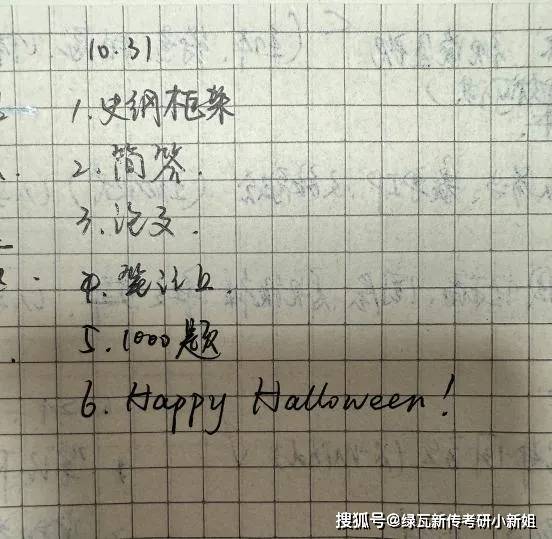 10.31
1.史纲框架
2.简答.
3.论文.
4.笔注上.
5.1000题
6.Happy Halloween!
搜狐号@绿瓦新传考研小新姐